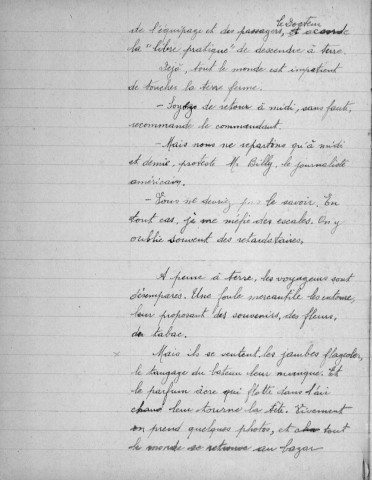 le Docteur
de l'équipage et des passagers, accorde
la "libre pratique" de descendre à terre.
Déjà, tout le monde est impatient
de toucher la terre ferme.
- Soyez de retour à midi, sans faute,
recommande le commandant.
- Mais nous ne repartons qu'à midi
et demie, proteste Mr. Billy, le journaliste
américain.
- Vous ne devriez pas le savoir. En
tout cas, je me méfie des escales. On y
oublie souvent des retardataires.
A peine à terre, les voyageurs sont
désemparés. Une foule mercantile les entoure,
leur proposant des souvenirs, des fleurs,
du tabac.
x Mais ils se sentent les jambes flageoler,
le tangage du bateau leur manque. Et
le parfum âcre qui flotte dans l'air
chaud leur tourne la tête. Vivement
on prend quelques photos, et tout
le monde se retrouve au bazar